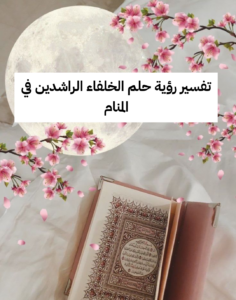 تفسير رؤية حلم الخلفاء الراشدين في
المنام